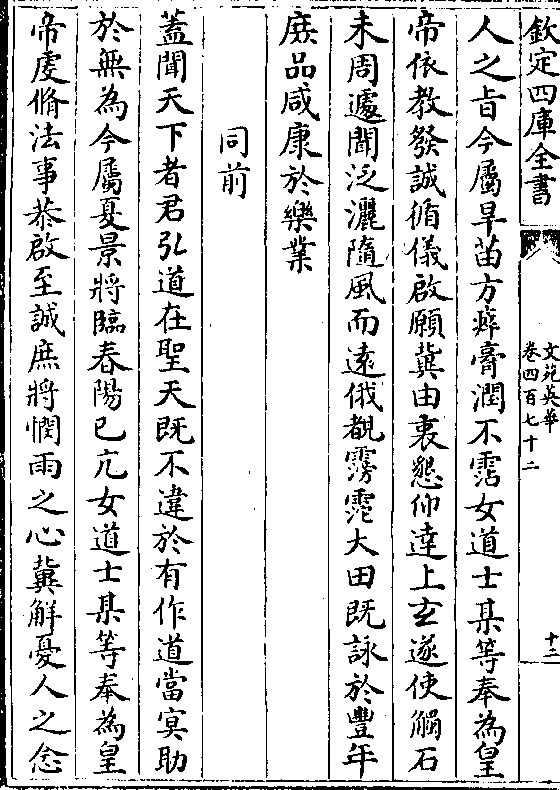 欽定四庫全書
文苑英華
卷四百七十二
十二
人之旨今屬旱苗方瘁膏潤不霑女道士某等奉為皇
帝依教發誠循儀啟願冀由衷懇仰達上玄遂使觸石
未周遽聞泛灑隨風而遠俄覩霶霑大田既詠於豐年
庶品咸康於樂業
同前
蓋聞天下者君弘道在聖天既不違於有作道當冥助
於無為今屬夏景將臨春陽已亢女道士某等奉為皇
帝虔脩法事恭啟至誠庶將憫雨之心冀解憂人之念